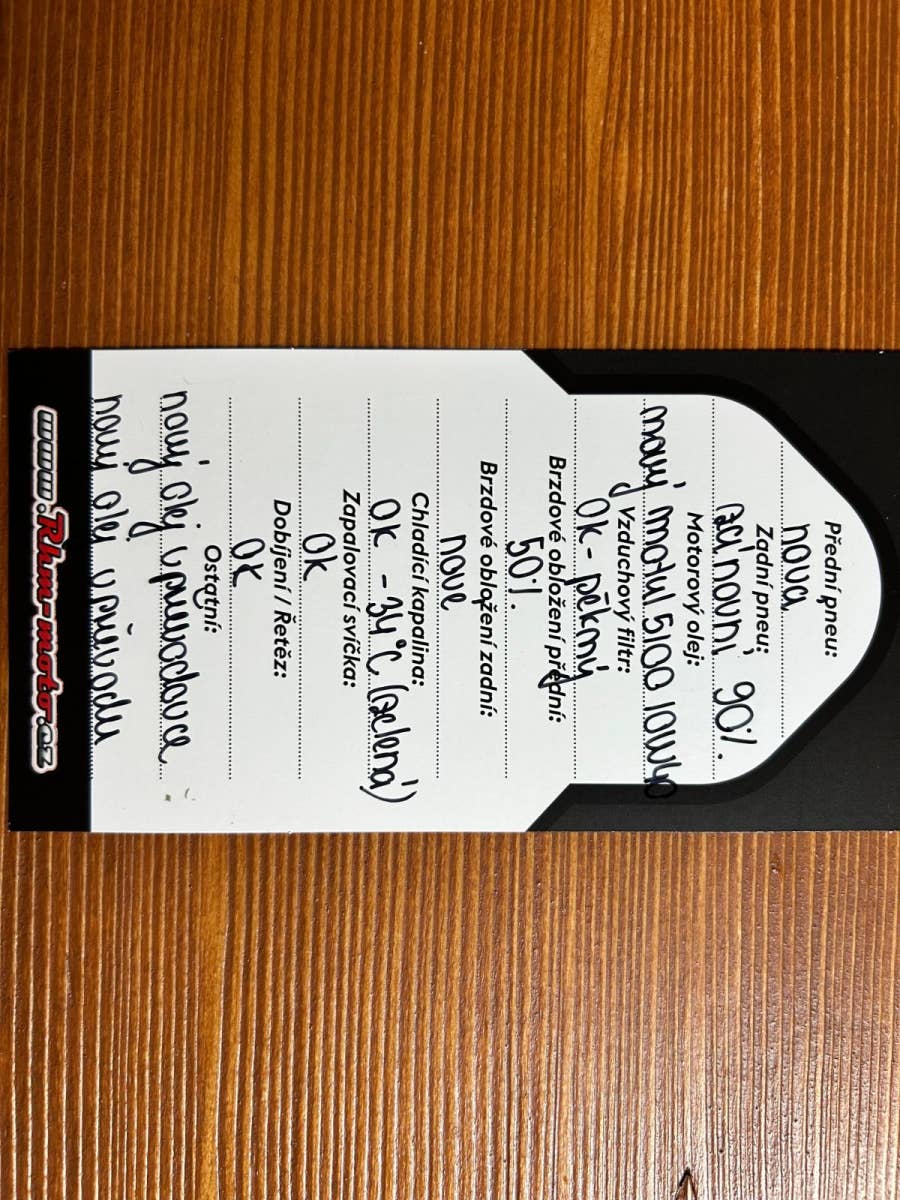 Přední pneu:
nova
Zadní pneu:
zánovní 90%.
Motorový olej:
nový motul 5100 10W40
Vzduchový filtr:
OK - pěkný
Brzdové obložení přední:
50%.
Brzdové obložení zadní:
nove
Chladící kapalina:
OK - 34°C (zelená)
Zapalovací svíčka:
OK
Dobíjení / Řetěz:
OK
Ostatní:
nový olej v převodovce
nový olej v
www.Rhm-moto.cz